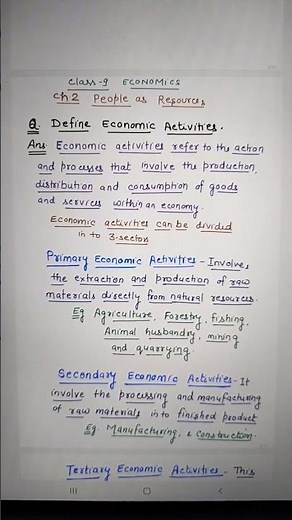 Class-9 ECONOMICS
Ch 2 People as Resources
Q. Define Economic Activities.
Ans Economic activities refer to the action
and processes that involve the production,
distribution and consumption of goods
and services within an economy.
Economic activities can be divided
in to 3-sectors
Primary Economic Activities - Involves,
the extraction and production of raw
materials directly from natural resources.
Eg Agriculture, Forestry, fishing,
Animal husbandry, mining
and quarrying.
Secondary Economic Activities - It
involve the processing and manufacturing
of raw materials in to finished product
Eg. Manufacturing, & Construction.
Tertiary Economic Activities - This